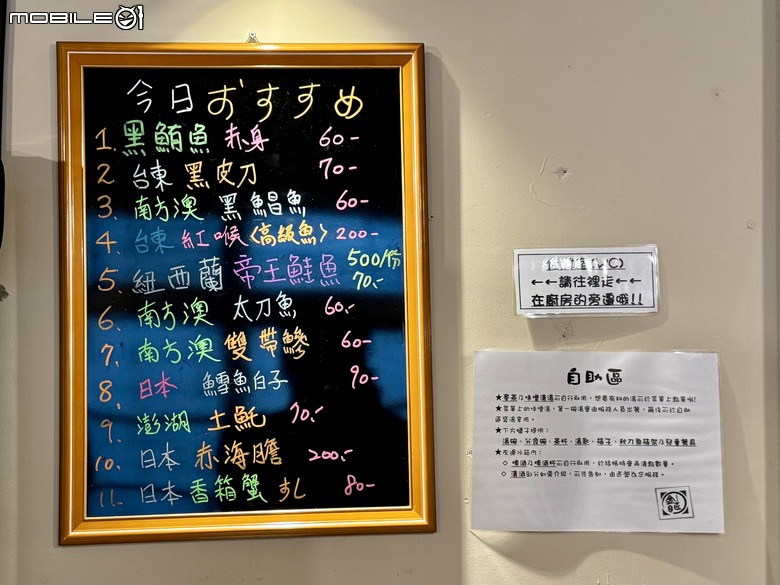 mobile01
今日おすすめ
1. 黑鮪魚 赤身 60-
2. 台東 黑皮刀 70-
3. 南方澳 黑鯧魚 60-
4. 台東 紅喉〈高級魚〉 200-
5. 紐西蘭 帝王鮭魚 500/份 70.-
6. 南方澳 太刀魚 60.-
7. 南方澳 雙帶鰺 60-
8. 日本 鱈魚白子 90-
9. 澎湖 土魠 70.-
10. 日本 赤海膽 200.-
11. 日本 香箱蟹 すし 80-
←←請往裡走←←
在廚房的旁邊哦!!
自助區
★下方櫃子提供:
湯碗、分食碗、茶杯、湯匙、筷子、秋刀魚筷架及兒童餐具
★左邊冰箱內: